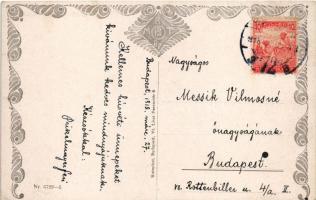 Budapest, 1918. márc. 27.
Kellemes húsvéti ünnepeket
kívánunk kedves mindnyájuknak.
Kézcsókkal:
Nagyságos
Messik Vilmosné
őnagyságának
Budapest.
VII. Rottenbiller u. 4/a. II.
Nr.